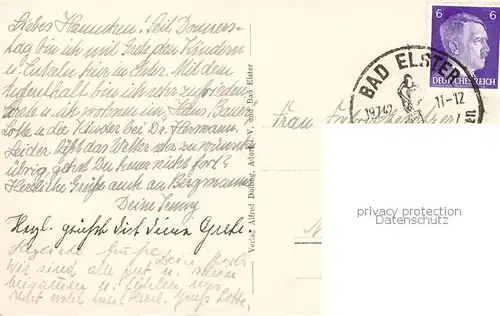 Liebes Hannchen! Seit Donners-
tag bin ich mit Grete den Kindern
u. Enkeln hier in Elster. Mit dem
Aufenthalt bin ich sehr zufrieden.
Grete u. ich wohnen im Haus Bauer
Lotte u. die Kinder bei Dr. Hermann.
Leider läßt das Wetter sehr zu wünschen
übrig, gehst Du heuer nicht fort?
Herzliche Grüße auch an Bergmanns
Deine Jenny
Herzl. grüßt dich deine Grete.
Herzliche Grüße Deine
Wir sind alle gut u. schön
beisammen u. fühlen uns
sehr wohl hier. Herzl. Gruß Lotte.
Verlag Alfred Dölling, Adorf i. V. und Bad Elster
6 6
DEUTSCHES REICH
BAD ELSTER
19742 11-12
Frau
privacy protection
DATENSCHUTZ